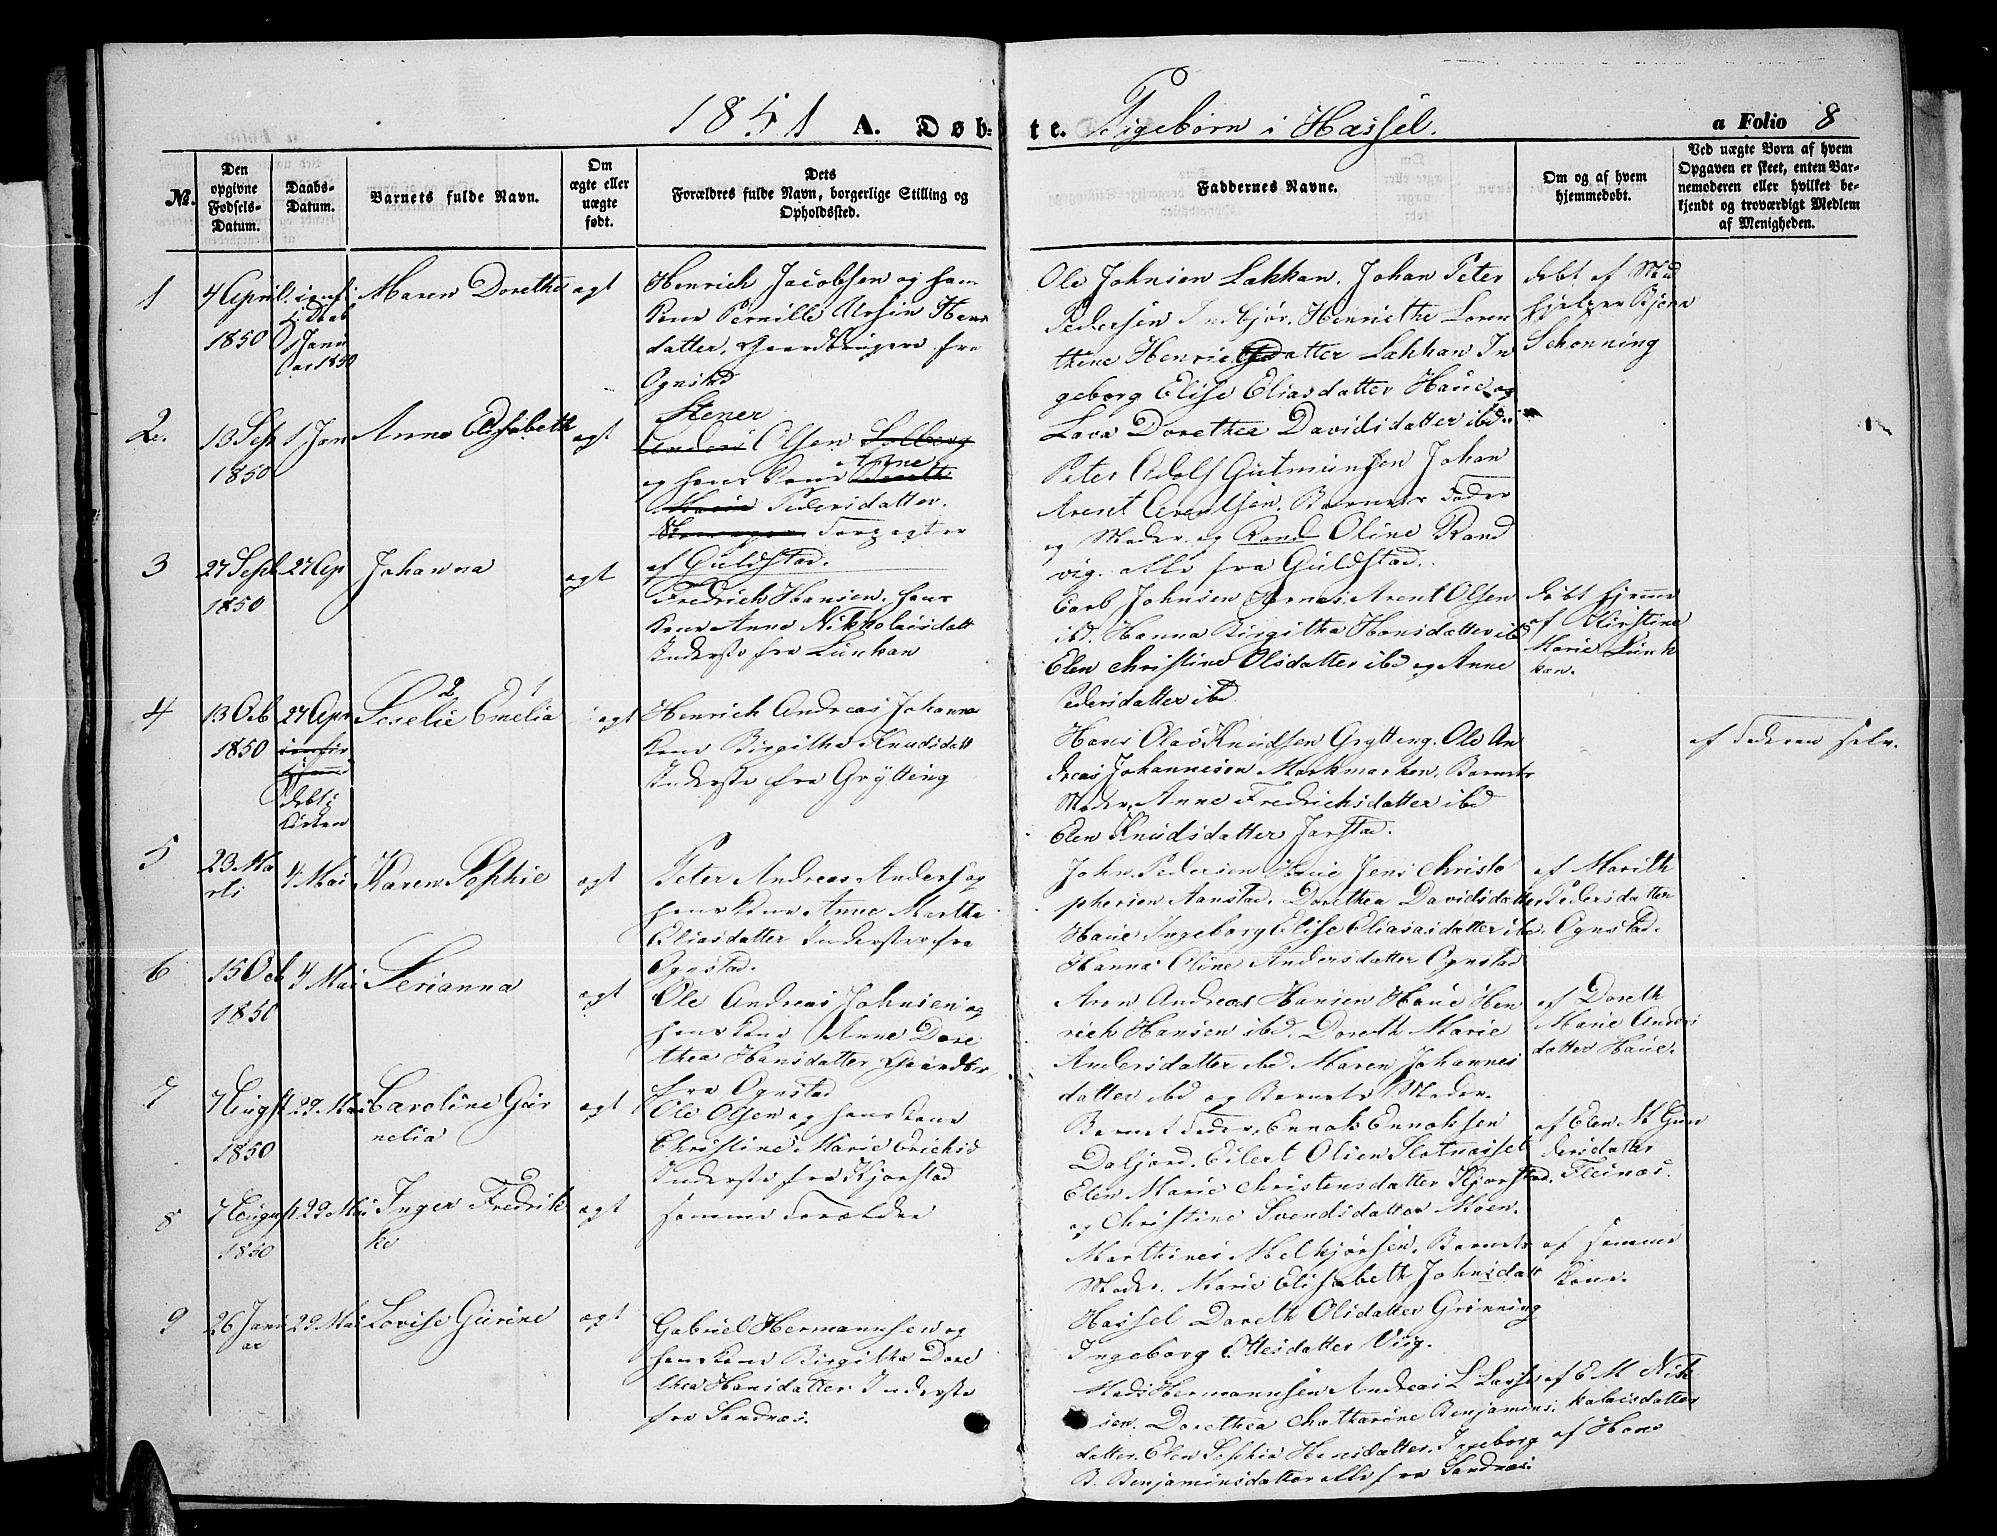 1851 A. Døb- te. Pigebørn i Hassel. a Folio 8
No. Den opgivne Fødsels-Datum. Daabs-Datum. Barnets fulde Navn. Om ægte eller uægte født. Dets Forældres fulde Navn, borgerlige Stilling og Opholdssted. Faddernes Navne. Om og af hvem hjemmedøbt. Ved uægte Børn af hvem Opgaven er skeet, enten Barnemoderen eller hvilket bekjendt og troværdigt Medlem af Menigheden.
1 4 April 1850
Daab
Janu
ar 1850
Maren Dorethe
ægt
Henrich Jacobsen og hans
Kone Pernille Ursin Hans
datter, Gaardbrugere fra
Ognstad
Ole Johnsen Lakkan. Johan Peter
Pedersen Indbjør. Henriethe Loren
thine Henrichsdatter Lakkan In
geborg Elise Eliasdatter Haue og
Lava Dorethea Davidsdatter ibd.
døbt af Med
hjelper Bjønn
Schonning
2. 13 Sep 1850
1 Jan
Anne Elisabeth
ægt
Stener
Anders Olsen Solberg
Anne
og hans Kone Dorethe
Marie Pedersdatter.
Forpagter
af Guldstad.
Peter Adolf Gutmunsen Johan
Arent Arentsen. Barnets Fader
og Moder og Rand Oline Rand
vig. alle fra Guldstad.
3 27 Sept 1850
27 Ap
Johanna
ægt
Fredrich Hansen. hans
Kone Anne Nikkolaisdatt
Inderste fra Lunkan
Carb Johnsen Hornes Arent Olsen
ibd. Hanna Birgitha Hansdatter ibd
Elen Christine Olsdatter ibd og Anne
Pedersdatter ibd
døbt hjemme
af Kirstine
Marie Lunk
kan.
4 13 Ocb 1850
27 Apr
døbt i
Kirken
Serelie Emelia
2 1
ægt
Henrich Andreas Johannes
Kone Birgitha Knudsdatt
Inderste fra Grytting
Hans Olai Knudsen Grytting. Ole An
dreas Johannesen Markmarken. Barnets
Moder. Anne Fredrichsdatter ibd
Elen Knudsdatter Jarstad.
af Faderen selv.
5 23 Ma
rti
4 Mai
Karen Sophie
ægt
Peter Andreas Anders og
hans Kone Anne Martha
Eliasdatter Inderster fra
Ognstad.
John Pedersen Haue Jens Christo
phersen Aanstad. Dorethea Davidsdatter
Haue Ingeborg Elise Eliasasdatter ibd.
Hanna Oline Andersdatter Ognstad
af Marith
Pedersdatter
Ognstad.
6 15 Ocb 1850
4 Mai
Serianna
ægt
Ole Andreas Johnsen og
hans Kone Anne Dore
thea Hansdatter Gaardbr.
fra Ognstad
Aron Andreas Hansen Haue Hen
rich Hansen ibd. Doreth Marie
Andersdatter ibd Maren Johannes
datter ibd og Barnets Moder.
af Doreth
Marie Anders
datter Haue.
7 7 Augst 1850
29 Mai
Caroline Gur
nelia
ægt
Ole Olsen og hans Kone
Christine Marie Erichsd
Inderste fra Kjørstad
Barnet Fader, Ennok Ennoksen
Daljord. Eilert Olsen Slotnæsset
Elen Marie Christensdatter Kjørstad.
og Christine Svendsdatter Moen.
af Elen M Gun
dersdatter
Fleinæs.
8 7 August 1850
29 Mai
Inger Fredrik
ke
ægt
samme Forældre
Marthines Melkjørsen. Barnets
Moder. Marie Elisabeth Johnsdatt
Hassel Doreth Olsdatter Grønning
Ingeborg Ottesdatter Vig.
af samme
Kone.
9 26 Janu
ar
29 Mai
Lovise Gurine
ægt
Gabriel Hermannsen og
hans Kone Birgitha Dore
thea Hansdatter Inderste
fra Sandnæs.
Mads Hermannsen Andreas L Lars
sen. Dorethea Chatharine Benjamins
datter. Elen Sophia Hansdatter. Ingeborg
B. Benjaminsdatter alle fra Sandnæs.
af E M Nik
kolaisdatter
af Hans